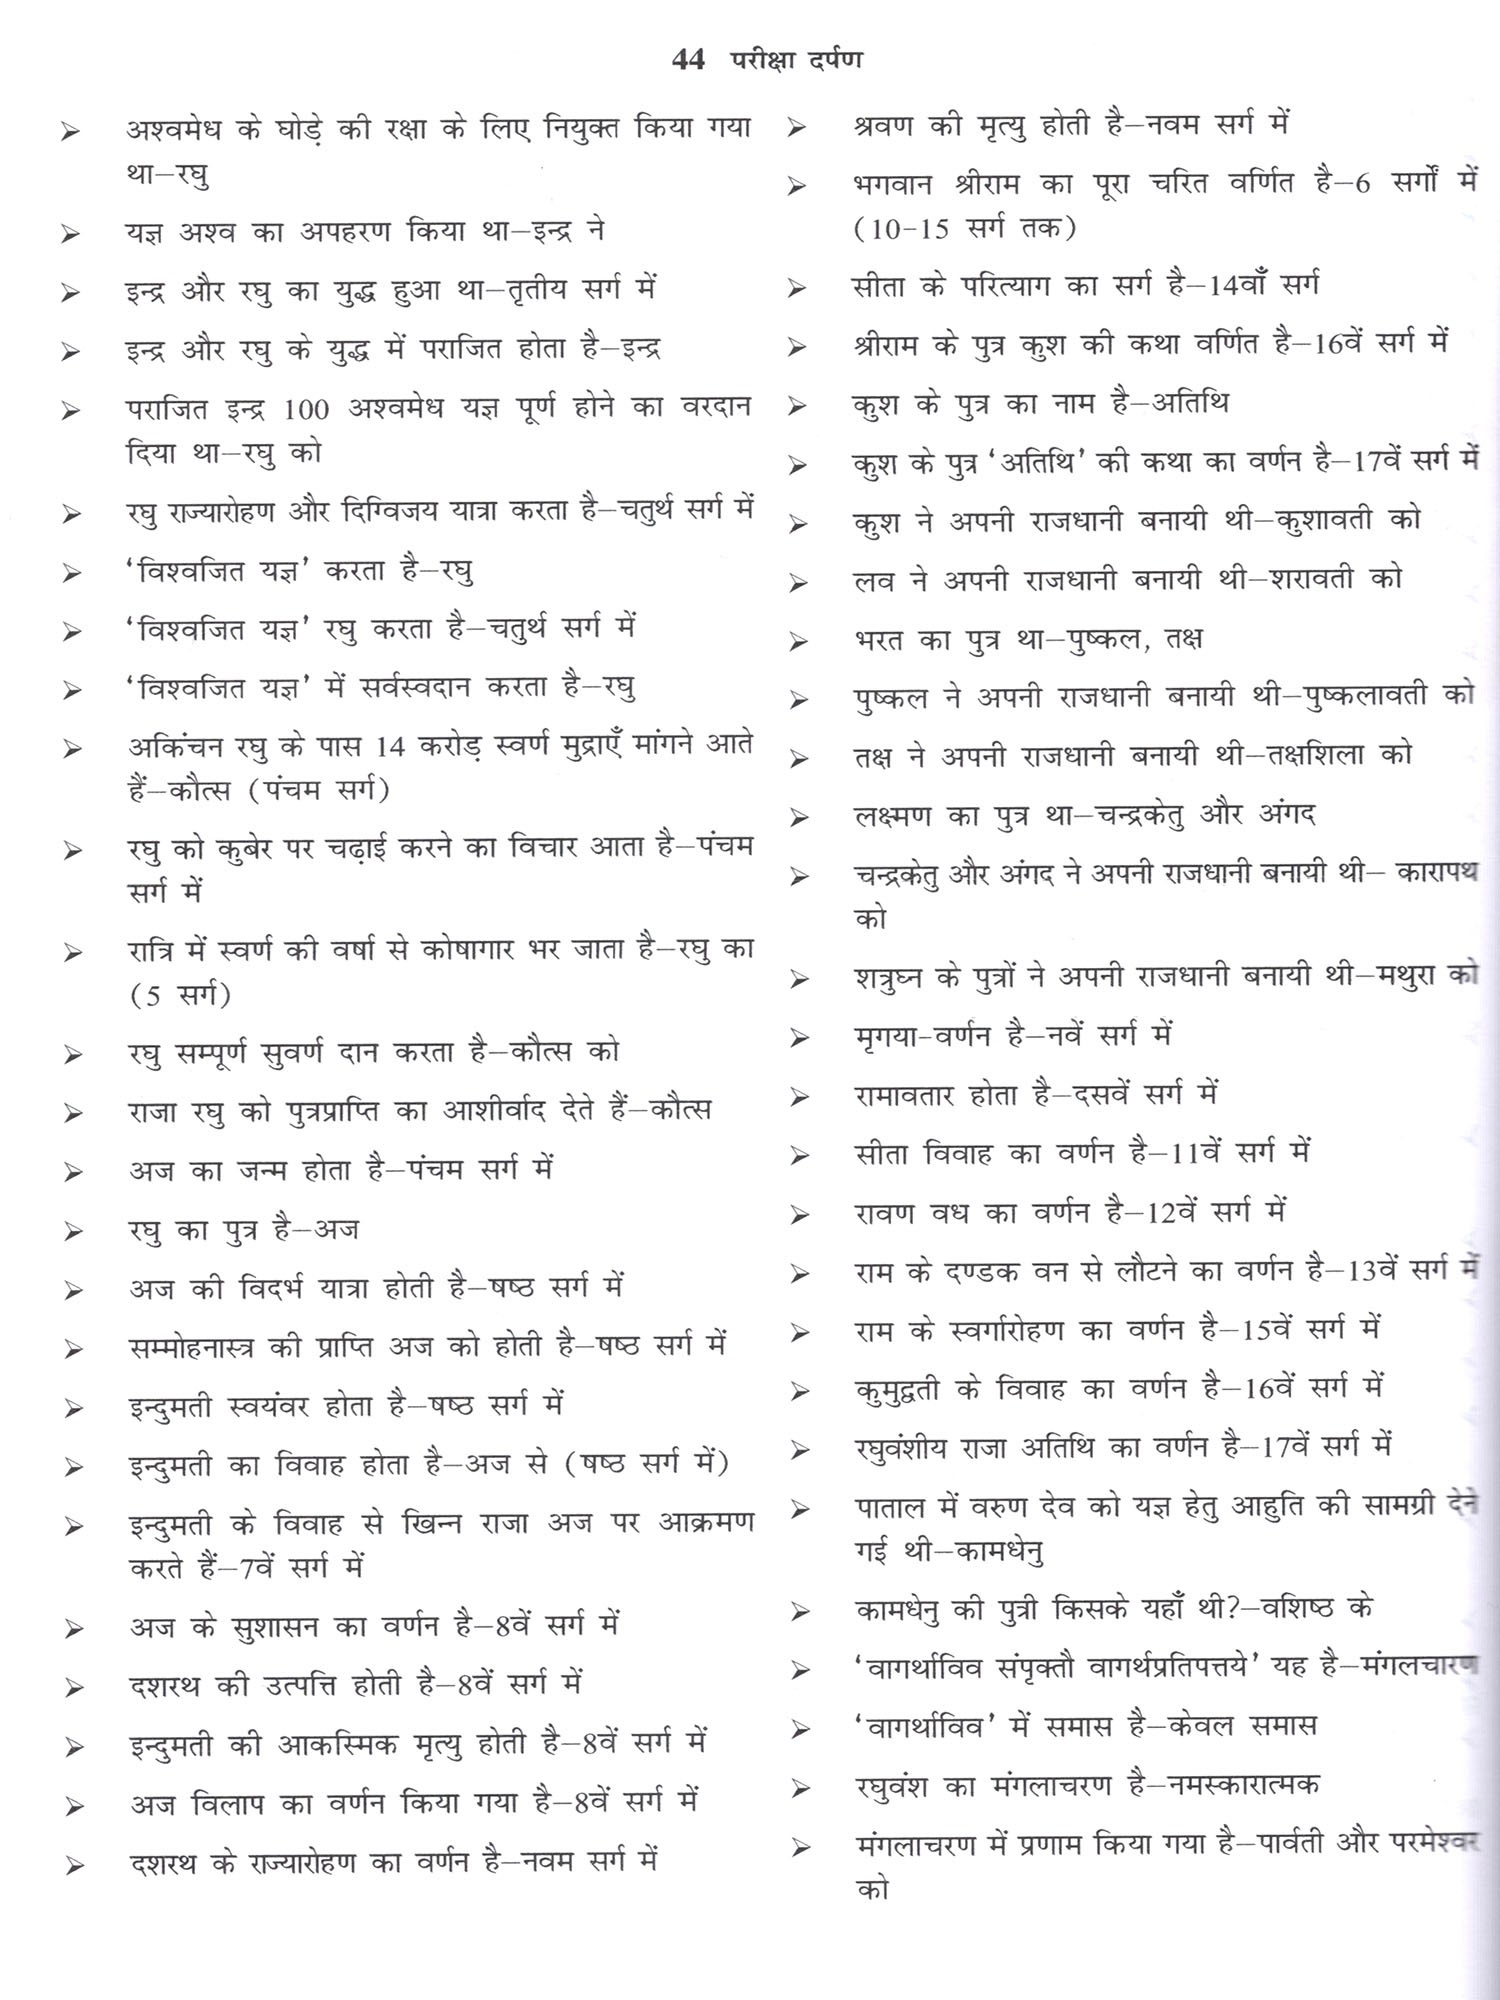 44 परीक्षा दर्पण
➢ अश्वमेध के घोड़े की रक्षा के लिए नियुक्त किया गया
था–रघु
➢ यज्ञ अश्व का अपहरण किया था–इन्द्र ने
➢ इन्द्र और रघु का युद्ध हुआ था–तृतीय सर्ग में
➢ इन्द्र और रघु के युद्ध में पराजित होता है–इन्द्र
➢ पराजित इन्द्र 100 अश्वमेध यज्ञ पूर्ण होने का वरदान
दिया था–रघु को
➢ रघु राज्यारोहण और दिग्विजय यात्रा करता है–चतुर्थ सर्ग में
➢ ‘विश्वजित यज्ञ’ करता है–रघु
➢ ‘विश्वजित यज्ञ’ रघु करता है–चतुर्थ सर्ग में
➢ ‘विश्वजित यज्ञ’ में सर्वस्वदान करता है–रघु
➢ अकिंचन रघु के पास 14 करोड़ स्वर्ण मुद्राएँ मांगने आते
हैं–कौत्स (पंचम सर्ग)
➢ रघु को कुबेर पर चढ़ाई करने का विचार आता है–पंचम
सर्ग में
➢ रात्रि में स्वर्ण की वर्षा से कोषागार भर जाता है–रघु का
(5 सर्ग)
➢ रघु सम्पूर्ण सुवर्ण दान करता है–कौत्स को
➢ राजा रघु को पुत्रप्राप्ति का आशीर्वाद देते हैं–कौत्स
➢ अज का जन्म होता है–पंचम सर्ग में
➢ रघु का पुत्र है–अज
➢ अज की विदर्भ यात्रा होती है–षष्ठ सर्ग में
➢ सम्मोहनास्त्र की प्राप्ति अज को होती है–षष्ठ सर्ग में
➢ इन्दुमती स्वयंवर होता है–षष्ठ सर्ग में
➢ इन्दुमती का विवाह होता है–अज से (षष्ठ सर्ग में)
➢ इन्दुमती के विवाह से खिन्न राजा अज पर आक्रमण
करते हैं–7वें सर्ग में
➢ अज के सुशासन का वर्णन है–8वें सर्ग में
➢ दशरथ की उत्पत्ति होती है–8वें सर्ग में
➢ इन्दुमती की आकस्मिक मृत्यु होती है–8वें सर्ग में
➢ अज विलाप का वर्णन किया गया है–8वें सर्ग में
➢ दशरथ के राज्यारोहण का वर्णन है–नवम सर्ग में
➢ श्रवण की मृत्यु होती है–नवम सर्ग में
➢ भगवान श्रीराम का पूरा चरित वर्णित है–6 सर्गों में
(10-15 सर्ग तक)
➢ सीता के परित्याग का सर्ग है–14वाँ सर्ग
➢ श्रीराम के पुत्र कुश की कथा वर्णित है–16वें सर्ग में
➢ कुश के पुत्र का नाम है–अतिथि
➢ कुश के पुत्र ‘अतिथि’ की कथा का वर्णन है–17वें सर्ग में
➢ कुश ने अपनी राजधानी बनायी थी–कुशावती को
➢ लव ने अपनी राजधानी बनायी थी–शरावती को
➢ भरत का पुत्र था–पुष्कल, तक्ष
➢ पुष्कल ने अपनी राजधानी बनायी थी–पुष्कलावती को
➢ तक्ष ने अपनी राजधानी बनायी थी–तक्षशिला को
➢ लक्ष्मण का पुत्र था–चन्द्रकेतु और अंगद
➢ चन्द्रकेतु और अंगद ने अपनी राजधानी बनायी थी– कारापथ
को
➢ शत्रुघ्न के पुत्रों ने अपनी राजधानी बनायी थी–मथुरा को
➢ मृगया-वर्णन है–नवें सर्ग में
➢ रामावतार होता है–दसवें सर्ग में
➢ सीता विवाह का वर्णन है–11वें सर्ग में
➢ रावण वध का वर्णन है–12वें सर्ग में
➢ राम के दण्डक वन से लौटने का वर्णन है–13वें सर्ग में
➢ राम के स्वर्गारोहण का वर्णन है–15वें सर्ग में
➢ कुमुद्वती के विवाह का वर्णन है–16वें सर्ग में
➢ रघुवंशीय राजा अतिथि का वर्णन है–17वें सर्ग में
➢ पाताल में वरुण देव को यज्ञ हेतु आहुति की सामग्री देने
गई थी–कामधेनु
➢ कामधेनु की पुत्री किसके यहाँ थी?–वशिष्ठ के
➢ ‘वागर्थाविव संपृक्तौ वागर्थप्रतिपत्तये’ यह है–मंगलचारण
➢ ‘वागर्थाविव’ में समास है–केवल समास
➢ रघुवंश का मंगलाचरण है–नमस्कारात्मक
➢ मंगलाचरण में प्रणाम किया गया है–पार्वती और परमेश्वर
को